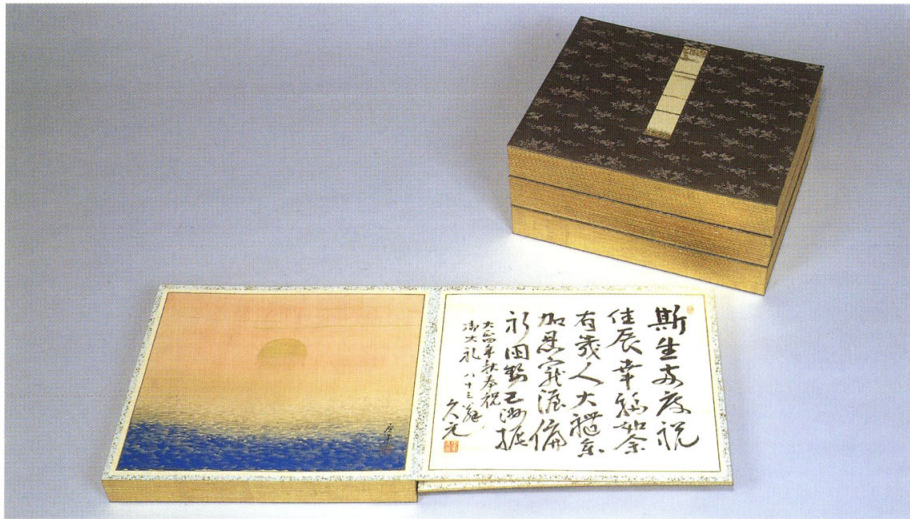 斯生度祝
佳辰幸福如余
有幾人大禮参
加恩寵渥偏
祈国勢振
大正四年秋奉祝
御大礼 八十三齢
久元